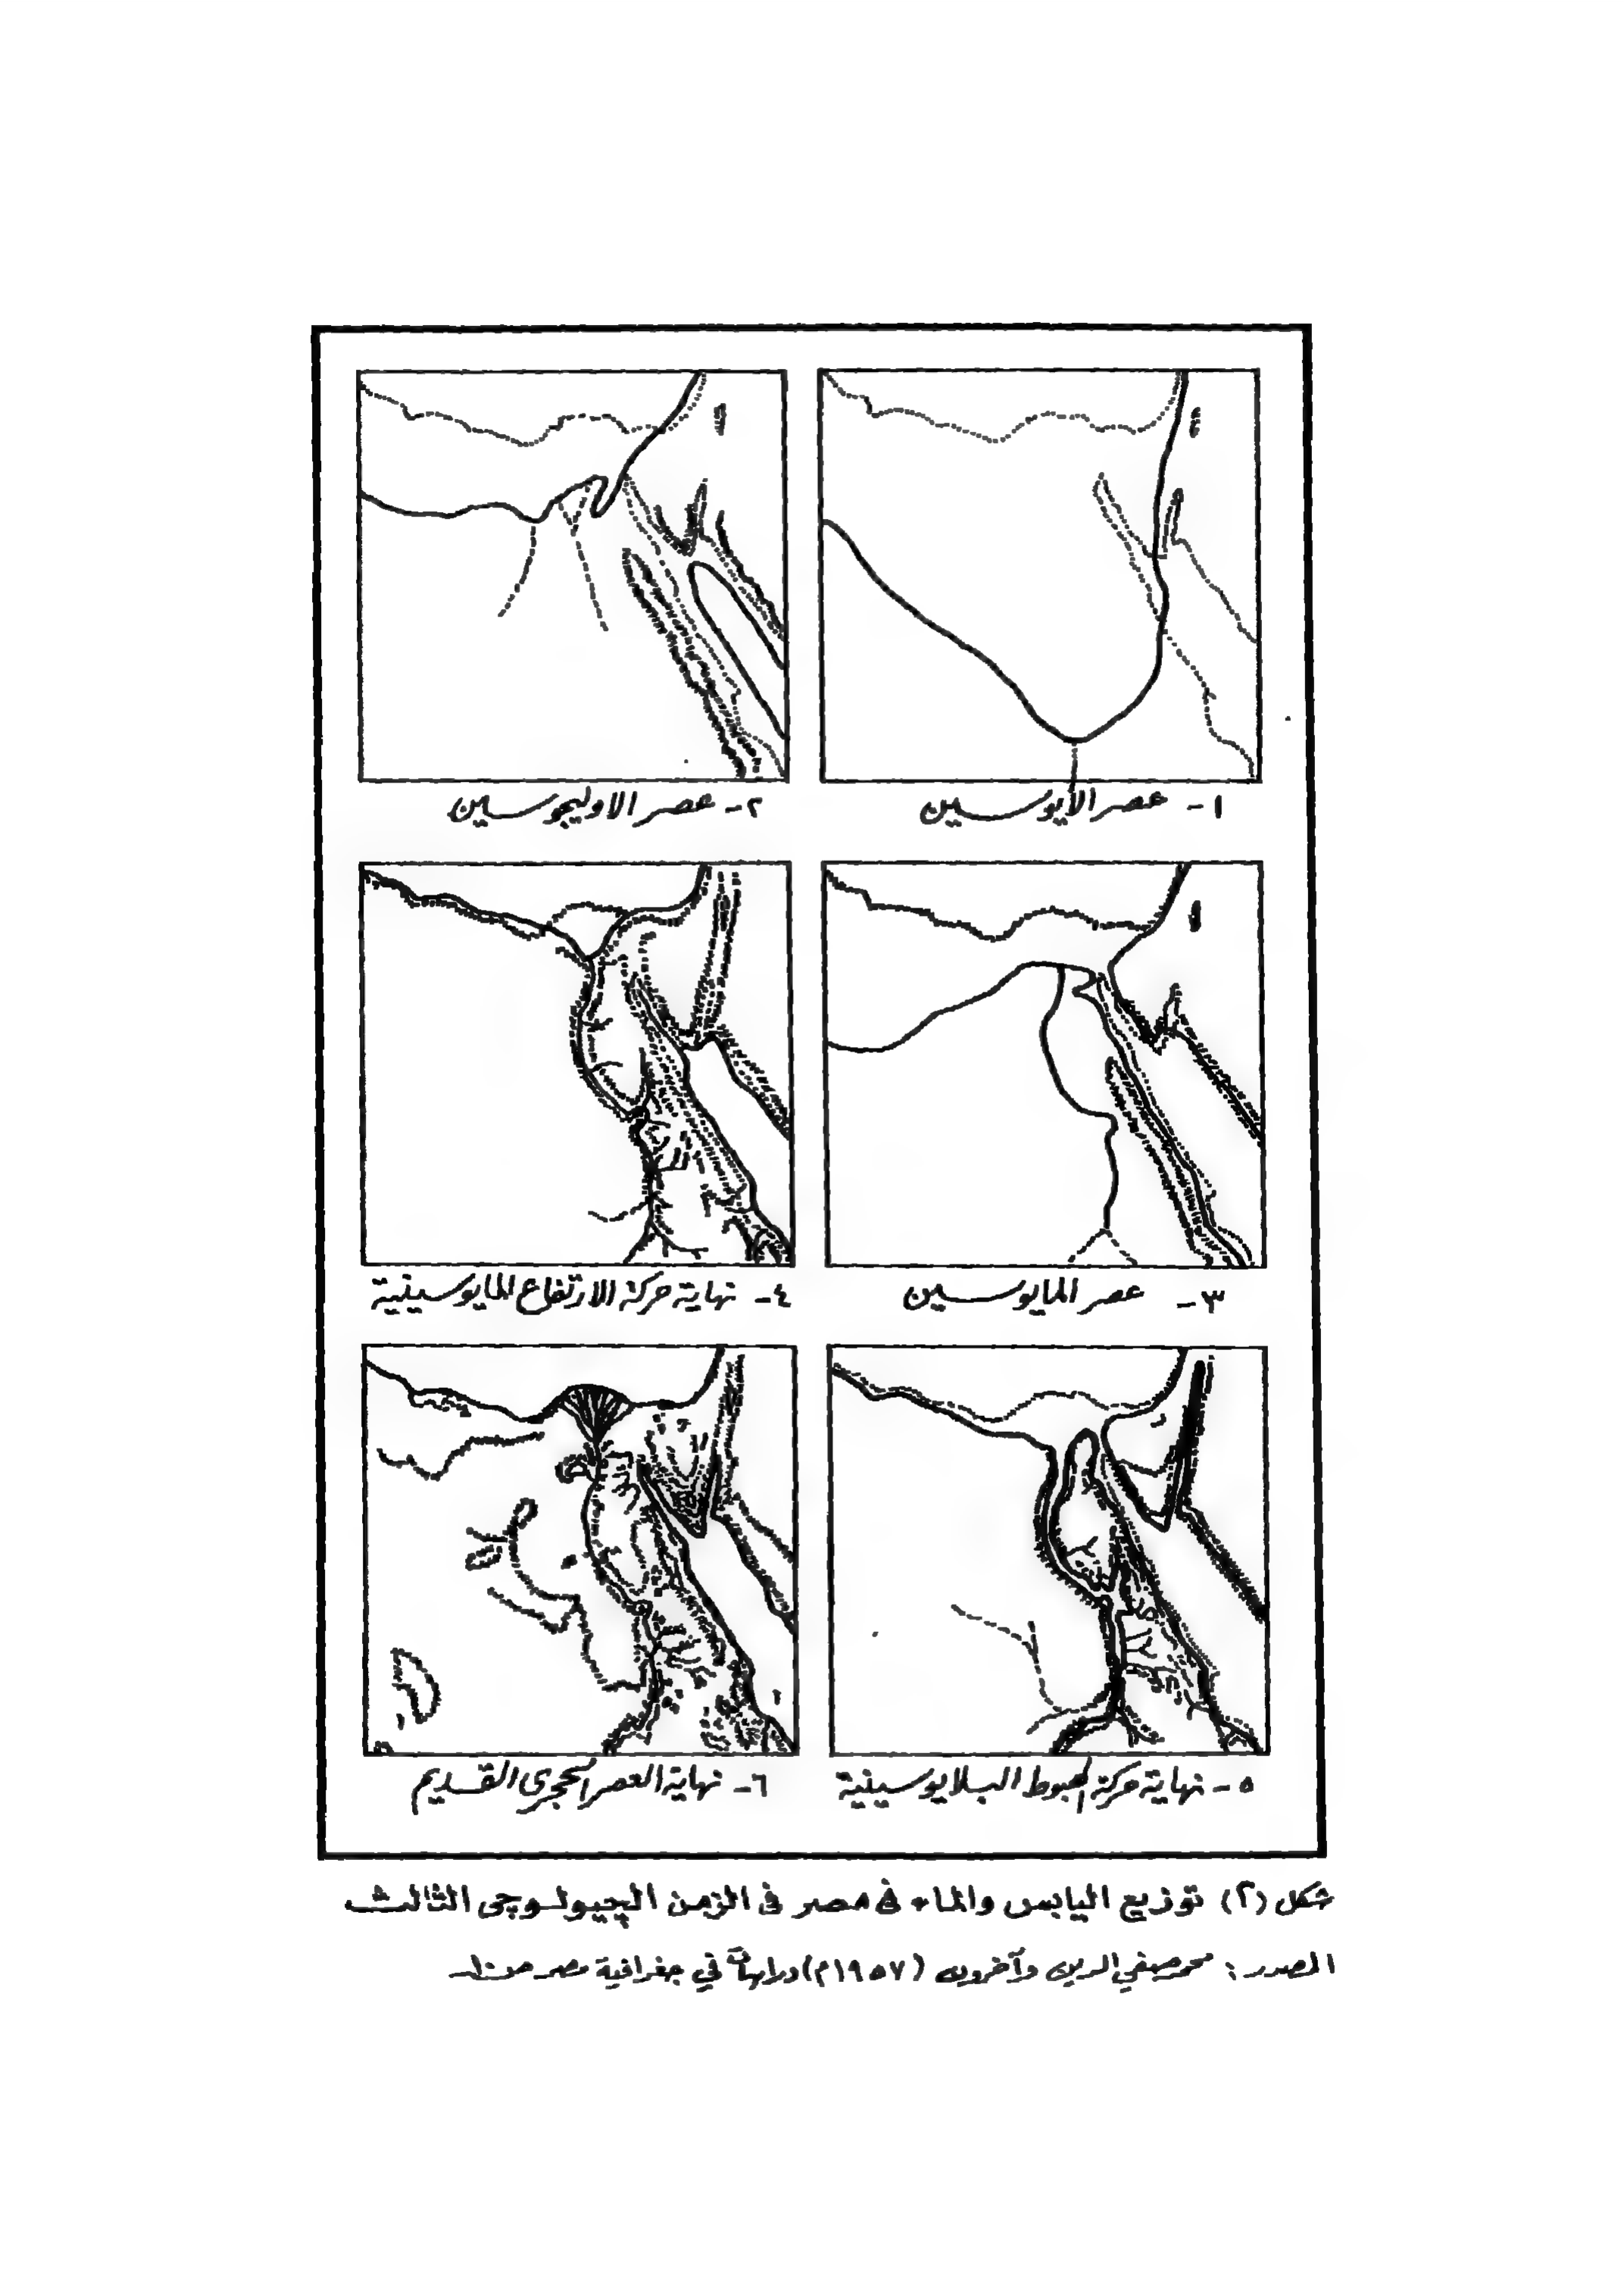 ١- عصر الأيوسين
٢- عصر الاوليجوسين
٣- عصر المايوسين
٤- نهاية حركة الارتفاع المايوسينية
٥- نهاية حركة الهبوط البلايوسينية
٦- نهاية العصر الحجرى القديم
شكل (٢) توزيع اليابس والماء فى مصر فى الزمن الچيولوچى الثالث
المصدر : محمد صفي الدين وآخرون (١٩٥٧م) دراسات في جغرافية مصر